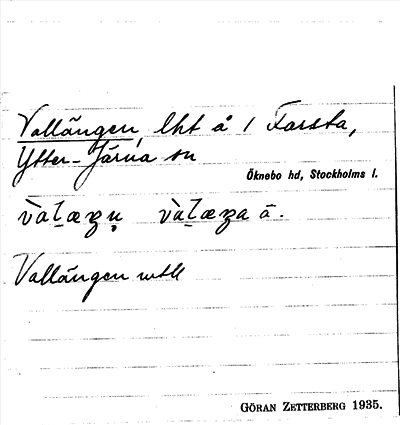 Vallängen, lht å 1 Farsta,
Ytter-Järna sn
Öknebo hd, Stockholms l.
Vallängen
GÖRAN ZETTERBERG 1935.